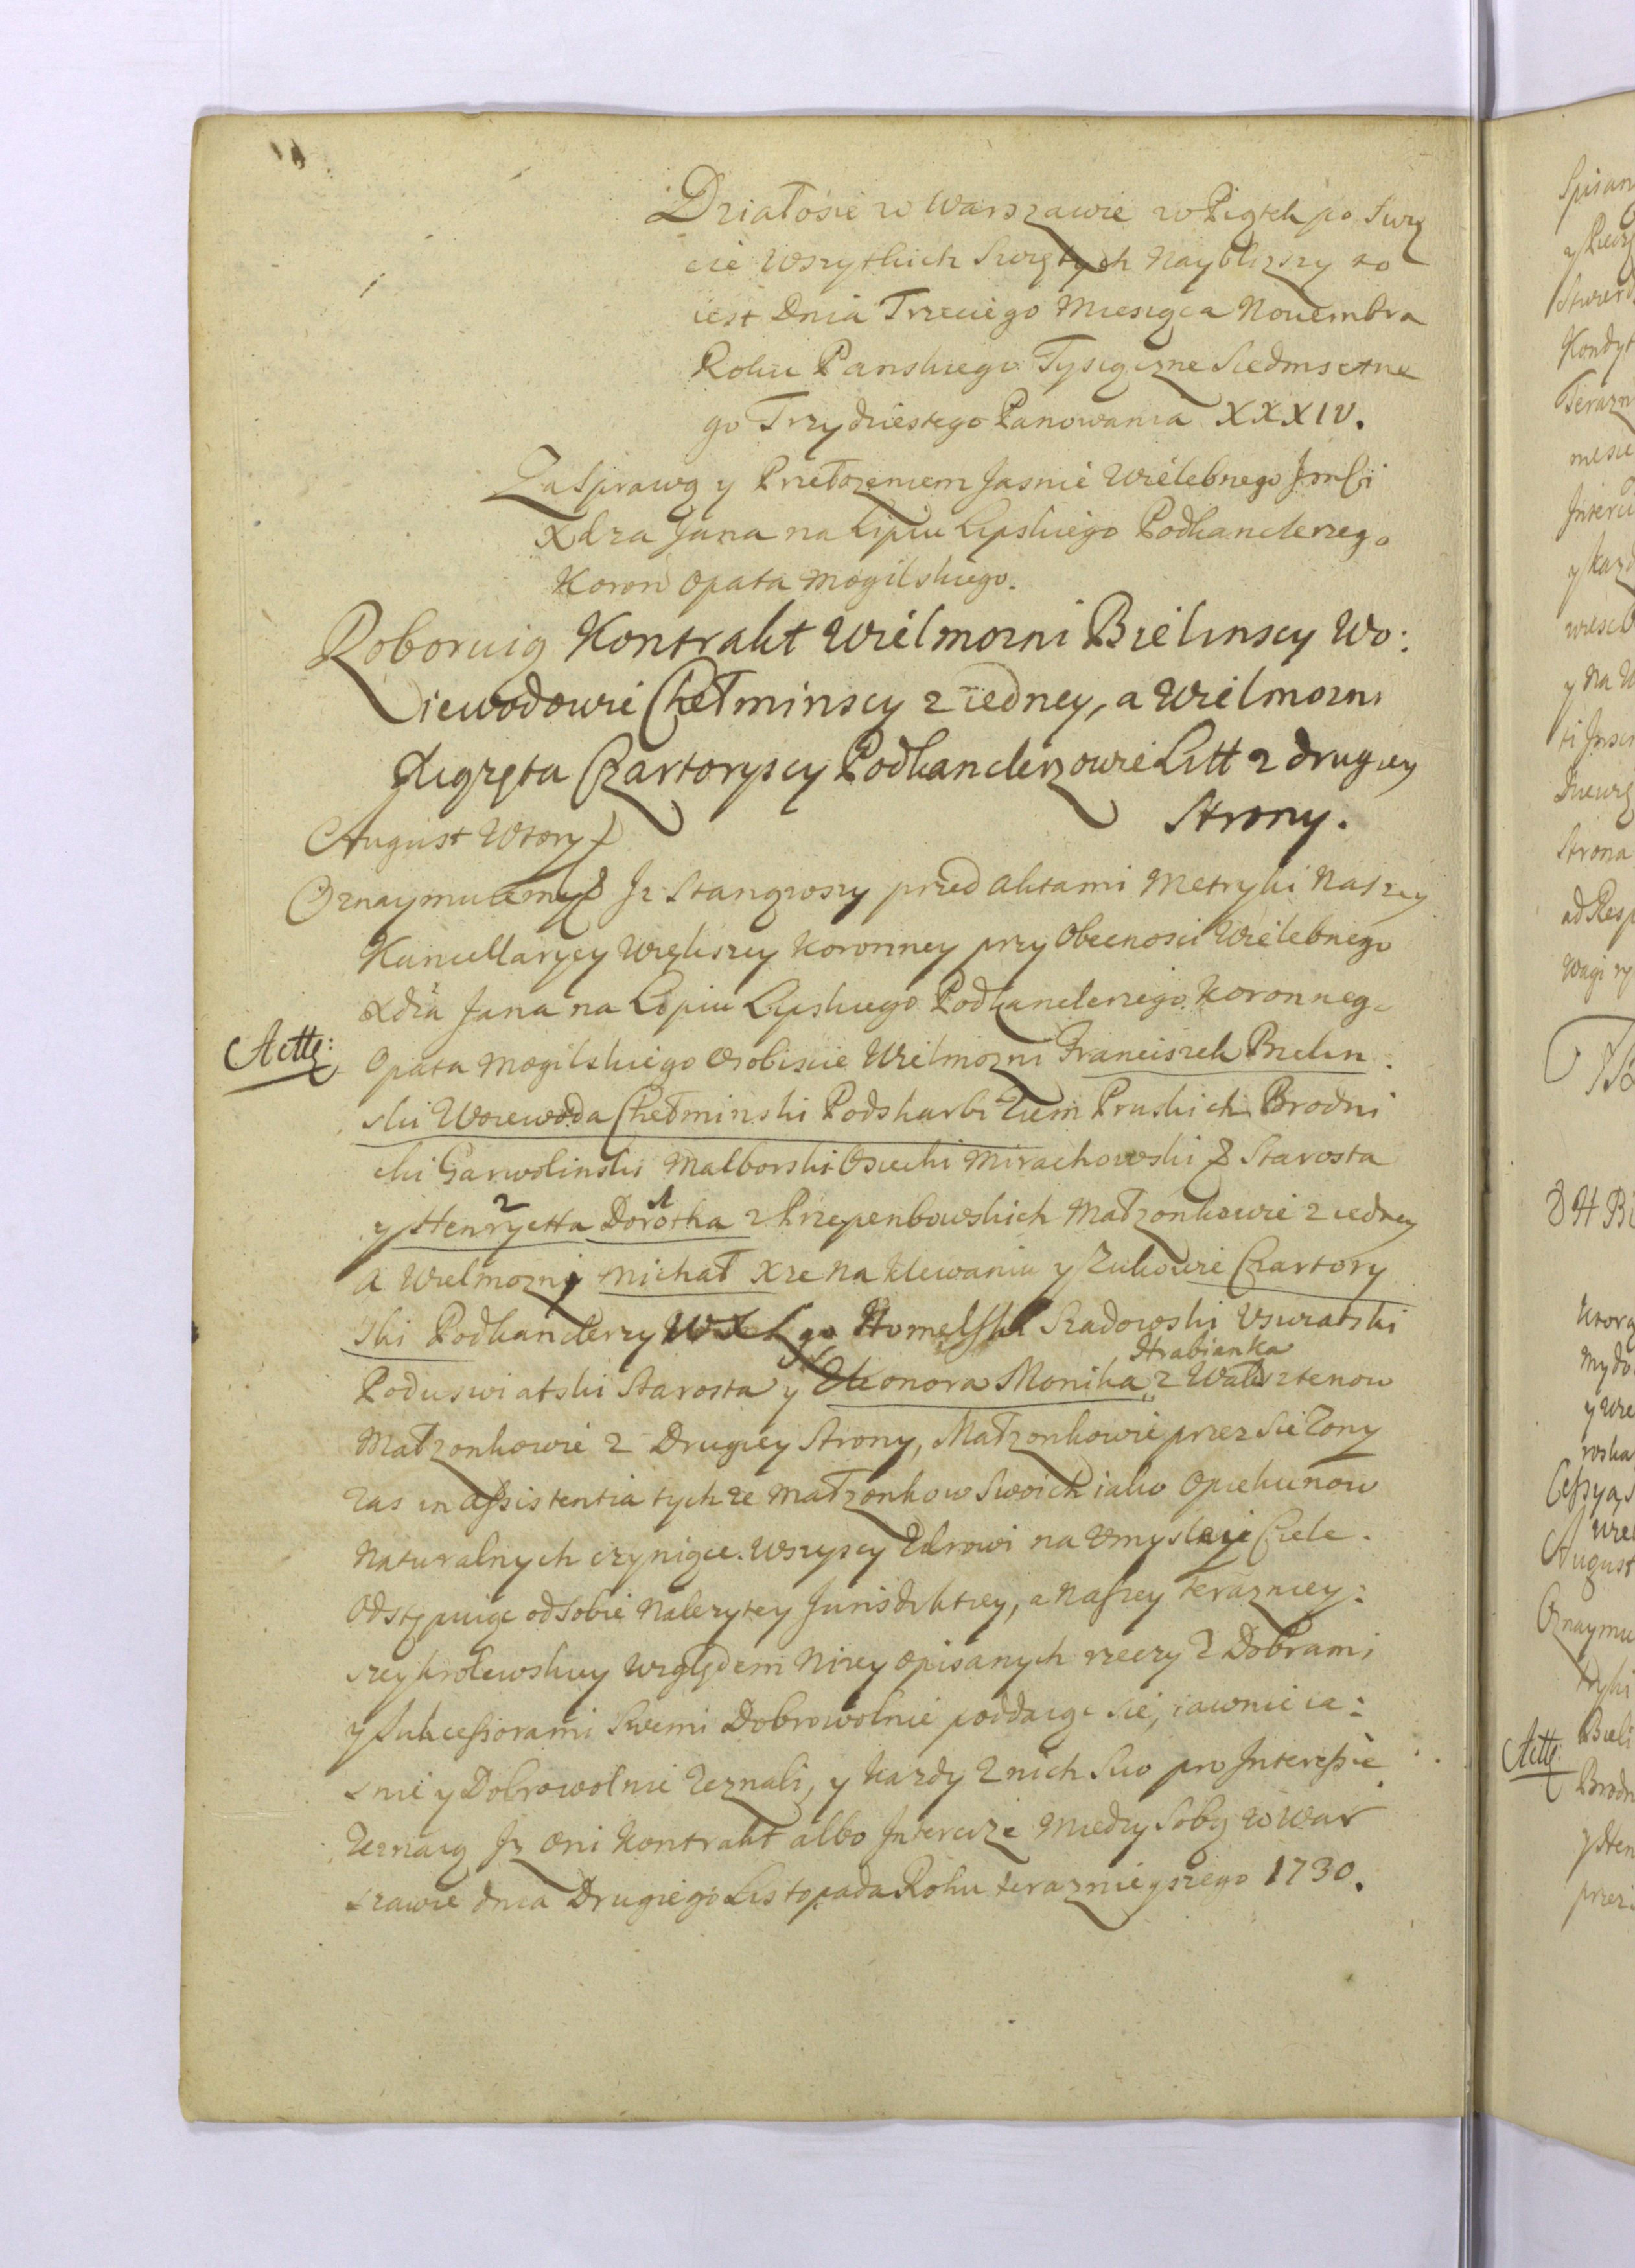 Działosie w Warszawie w Piątek po Swę
cie Wszytkich Swiętych Nayblizszy to
iest Dnia Trzeciego Miesiąca Nouembra
Roku Panskiego Tysiączne Siedmsetne
go Trzydziestego Panowania XXXIV.
Zasprawą y Przełozeniem Jasnie Wielebnego Jmſci
Xdza Jana na Lipiu Lipskiego Podkanclerzego
Koron Opata Mogilskiego.
Roboruią Kontrakt Wielmozni Bielinscy Wo:
iewodowie Chełminscy z iedney, a Wielmozni
Xiązęta Czartoryscy Podkanclerzowie Litt z drugiey
Strony.
August Wtory
Oznaymuiemy & Jz Stanąwszy przed Aktami Metryki Naszey
Kancellaryey Większey Koronney przy Obecnosci Wielebnego
Xdza Jana na Lipiu Lipskiego Podkanclerzego Koronneg
Actg:
Opata Mogilskiego Osobiscie Wielmozni Franciszek Bielin:
ski Woiewoda Chełminski Podskarbi Ziem Pruskich Brodni
cki Garwolinski Malborski Osiecki Mirachowski & Starosta
2 1
y Henryetta Dorotka z Przepenbowskich Małzonkowie z iedney
A Wielmozny Michał Xze na Klewaniu y Zukowie Czartory
ski Podkanclerzy WXLgo Homelſki Szadowski Uswiatski
Hrabianka
Poduswiatski Starosta y Eleonora Monika z Waldsztenow
Małzonkowie z Drugiey Strony, Małzonkowie przez Sie Zony
zas in aſsistentia tychze Małzonkow Swoich iako Opiekunow
Naturalnych czyniące. Wszyscy Zdrowi na Umysle y Ciele.
Odstępuiąc od Sobie Nalezytey Jurisdiktiey, a Naſzey terazniey:
szey krolewskiey Względem Nizey opisanych rzeczy z Dobrami
y Sukceſsorami Swemi Dobrowolnie poddaiąc Sie, iawnie ia:
snie y Dobrowolnie Zeznali, y Kazdy z nich Suo pro Intereſsie
Zeznaią Jz Oni Kontrakt albo Intercize Miedzy Sobą w War
szawie dnia Drugiego Listopada Roku teraznieyszego 1730.